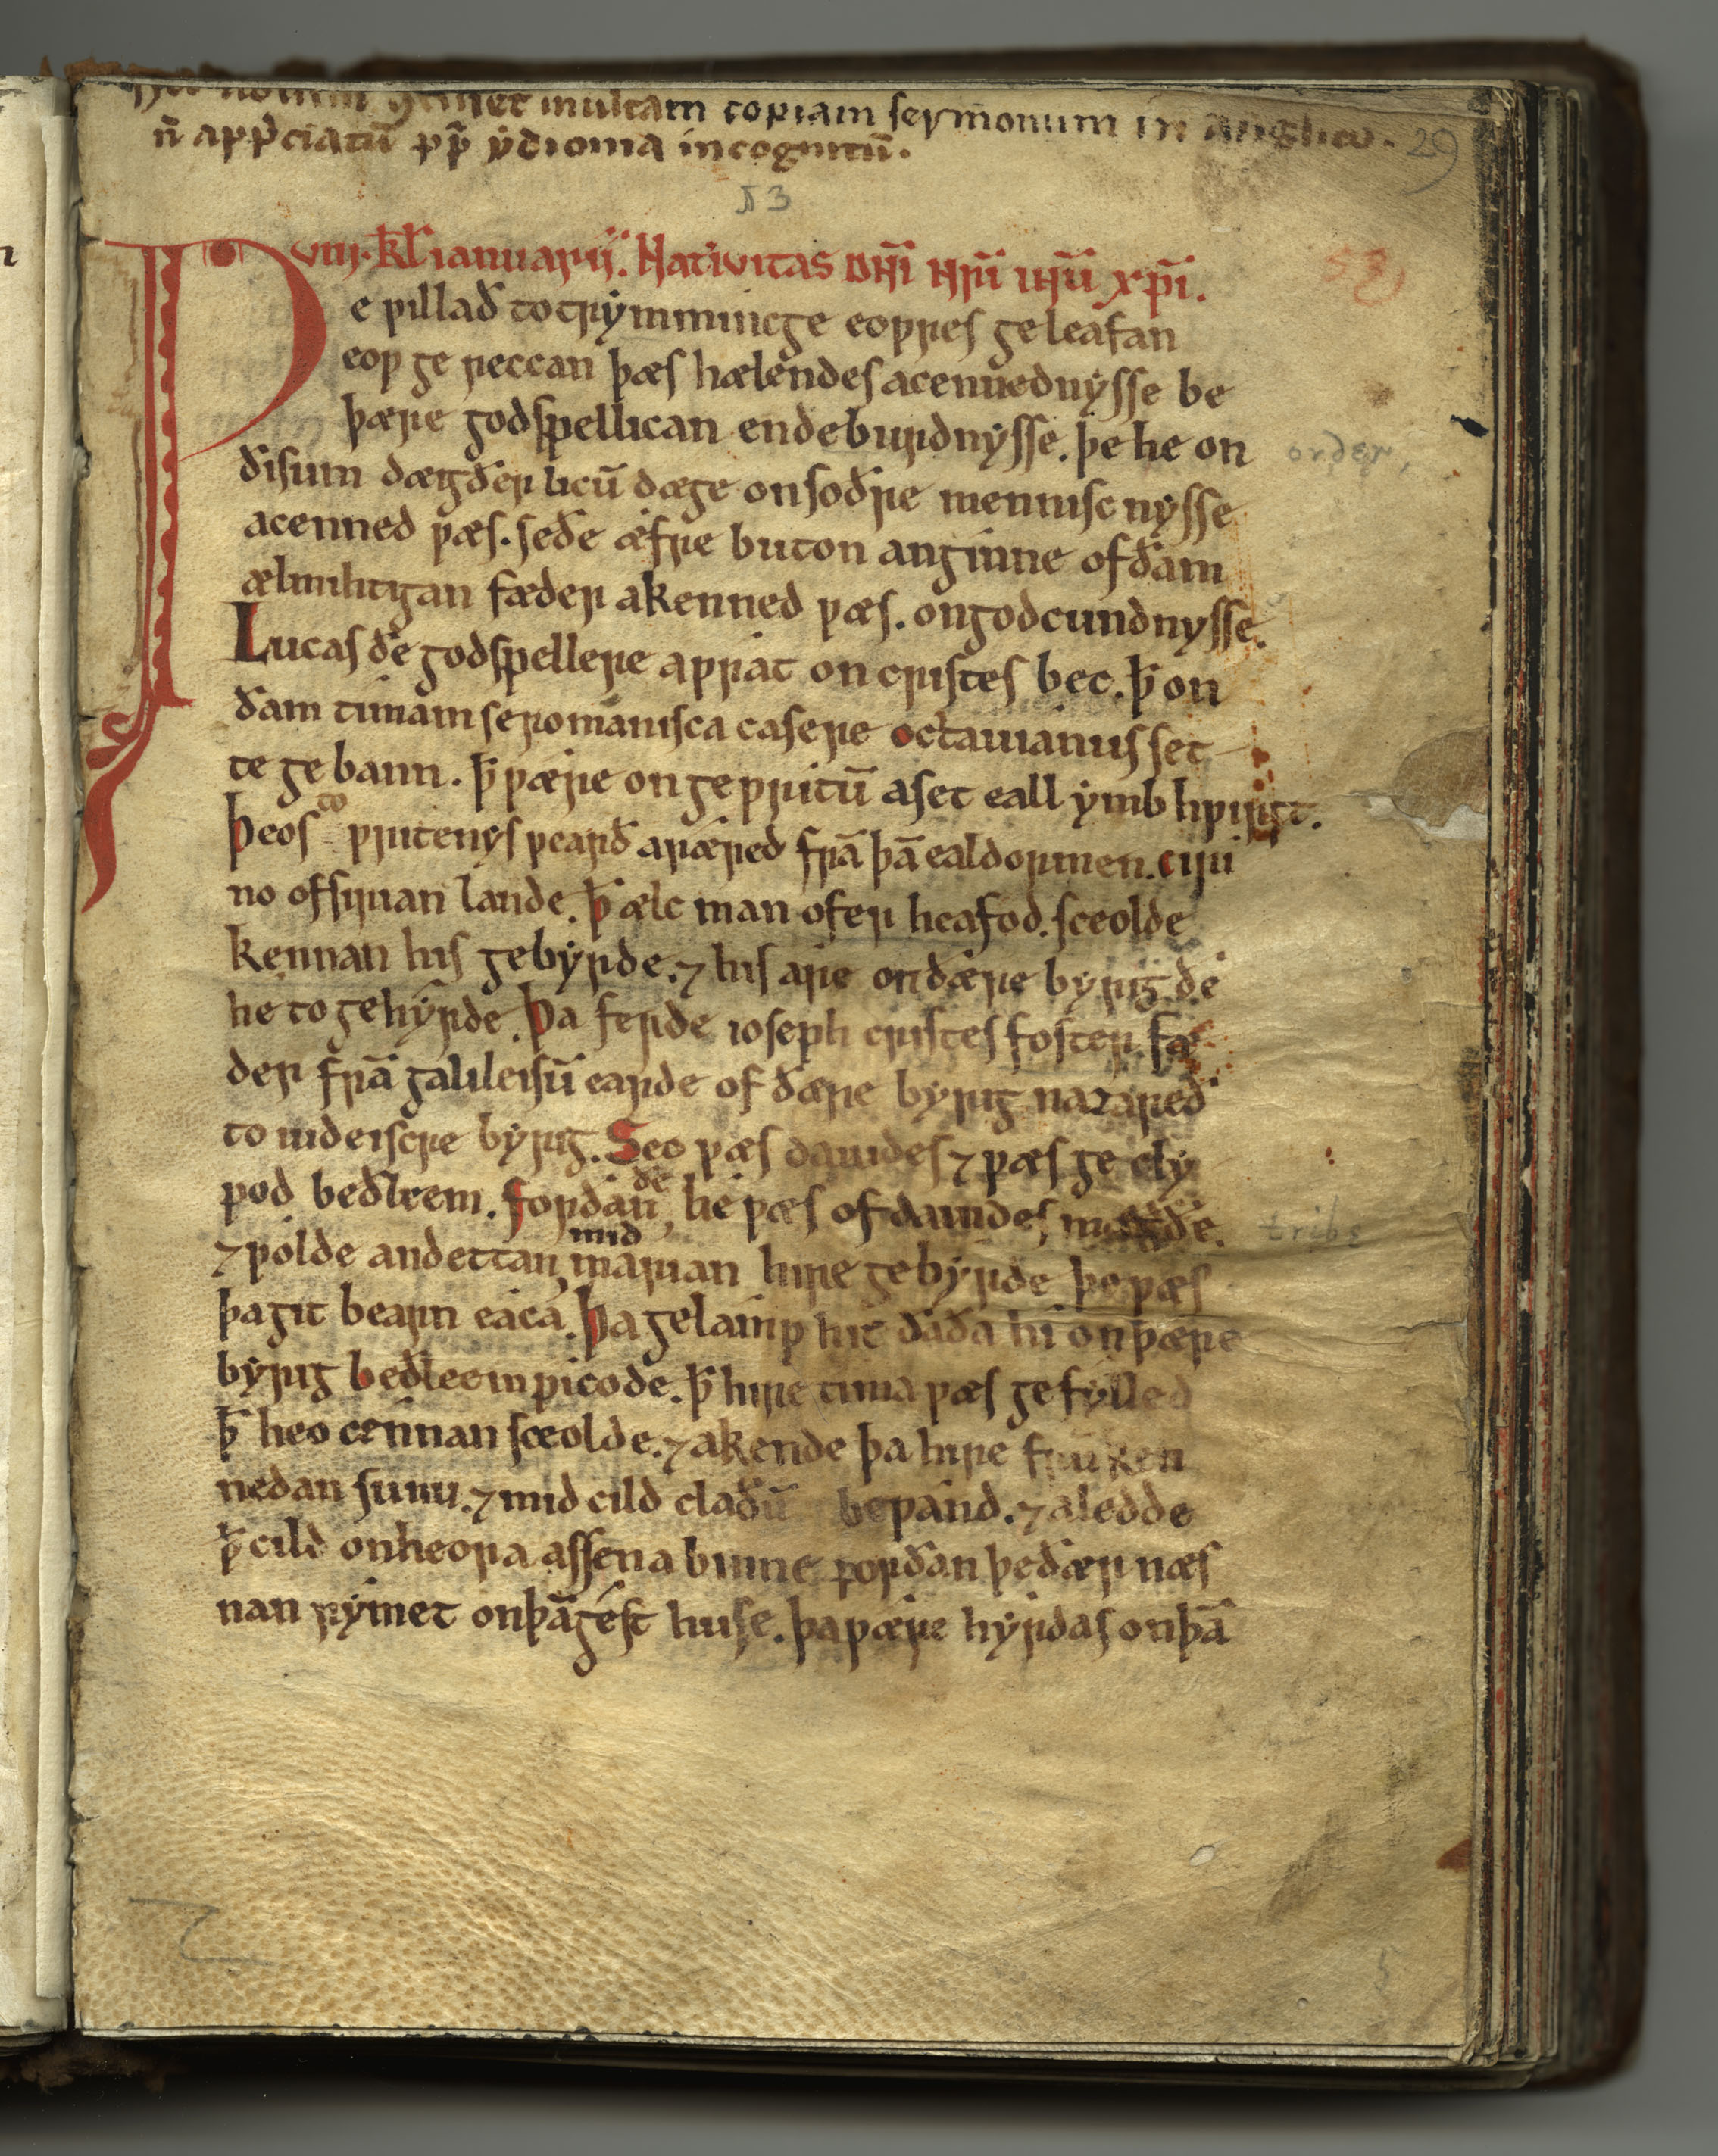 multam copiam sermonum in Anglico. 29
n̄ app̄ciatū p̱p̄ ẏdioma incognitū.
53
VIII. kƚ ianuarij. Natiuitas dn̄i nr̄i ihū xp̄i.
58
Ƿe ƿillað to trẏmmincge eoƿres geleafan
eoƿ ge reccan þæs hælendes acennednẏsse be
þære godspellican endeburdnẏsse. þe he on
order,
ðisum dægðer licū dæge on soðre mennisc nẏsse
acenned ƿæs. se ðe æfre buton anginne of ðam
ælmihtigan fæder akenned ƿæs. on godcundnysse.
Lucas ðe godspellere aƿrat on cristes bec. ꝥ on
ðam timam se romanisca casere octauianus set
te ge bann. ꝥ ƿære on ge ƿritū aset eall ẏmb hƿirft.
þeos to ƿritenẏs ƿearð aræred frā þā ealdormen. ciri
no of sirian lande. ꝥ ælc man ofer heafod. sceolde
kennan his gebẏrde. ⁊ his are on dære bẏrig ðe
he to gehẏrde. Þa ferde ioseph cristes foster fæ
der frā galileisū earde of ðære bẏrig nazareð
to iudeiscre bẏrig. Seo ƿæs dauides ⁊ ƿæs ge cly
pod beðleem. forðan ðe he ƿæs of dauides mægðe.
tribe
⁊ ƿolde andettan mid marian hire gebẏrde þe ƿæs
þa git bearn eaca. Þa gelamp hit ðaða hi on þære
bẏrig beðleem ƿicode. ꝥ hire tima ƿæs gefylled
ꝥ heo cennan sceolde. ⁊ akende þa hire frūken
nedan sunu. ⁊ mid cild claðū beƿand. ⁊ aledde
ꝥ cild on heora assena binne forðan þe ðær næs
nan rẏmet on þā gest huse. þa ƿære hẏrdas on þā